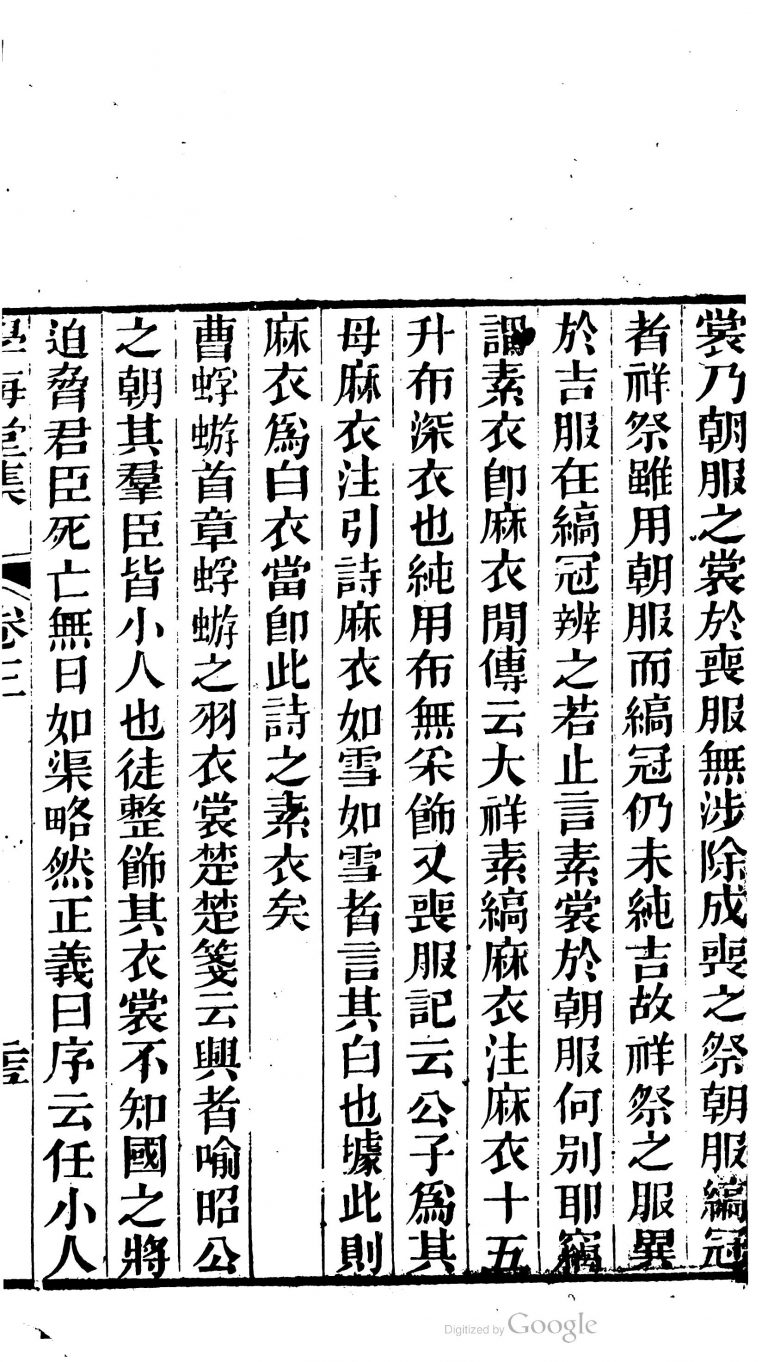 裳乃朝服之裳於喪服無涉除成喪之祭朝服縞冠
者祥祭雖用朝服而縞冠仍未純吉故祥祭之服異
於吉服在縞冠辨之若止言素裳於朝服何別耶竊
謂素衣卽麻衣閒傳云大祥素縞麻衣注麻衣十五
升布深衣也純用布無采飾又喪服記云公子爲其
母麻衣注引詩麻衣如雪如雪者言其白也據此則
麻衣爲白衣當卽此詩之素衣矣
曹蜉蝣首章蜉蝣之羽衣裳楚楚箋云興者喻昭公
之朝其羣臣皆小人也徒整飾其衣裳不知國之將
迫脅君臣死亡無日如渠略然正義曰序云任小人
學海堂集 卷三
Digitized by Google